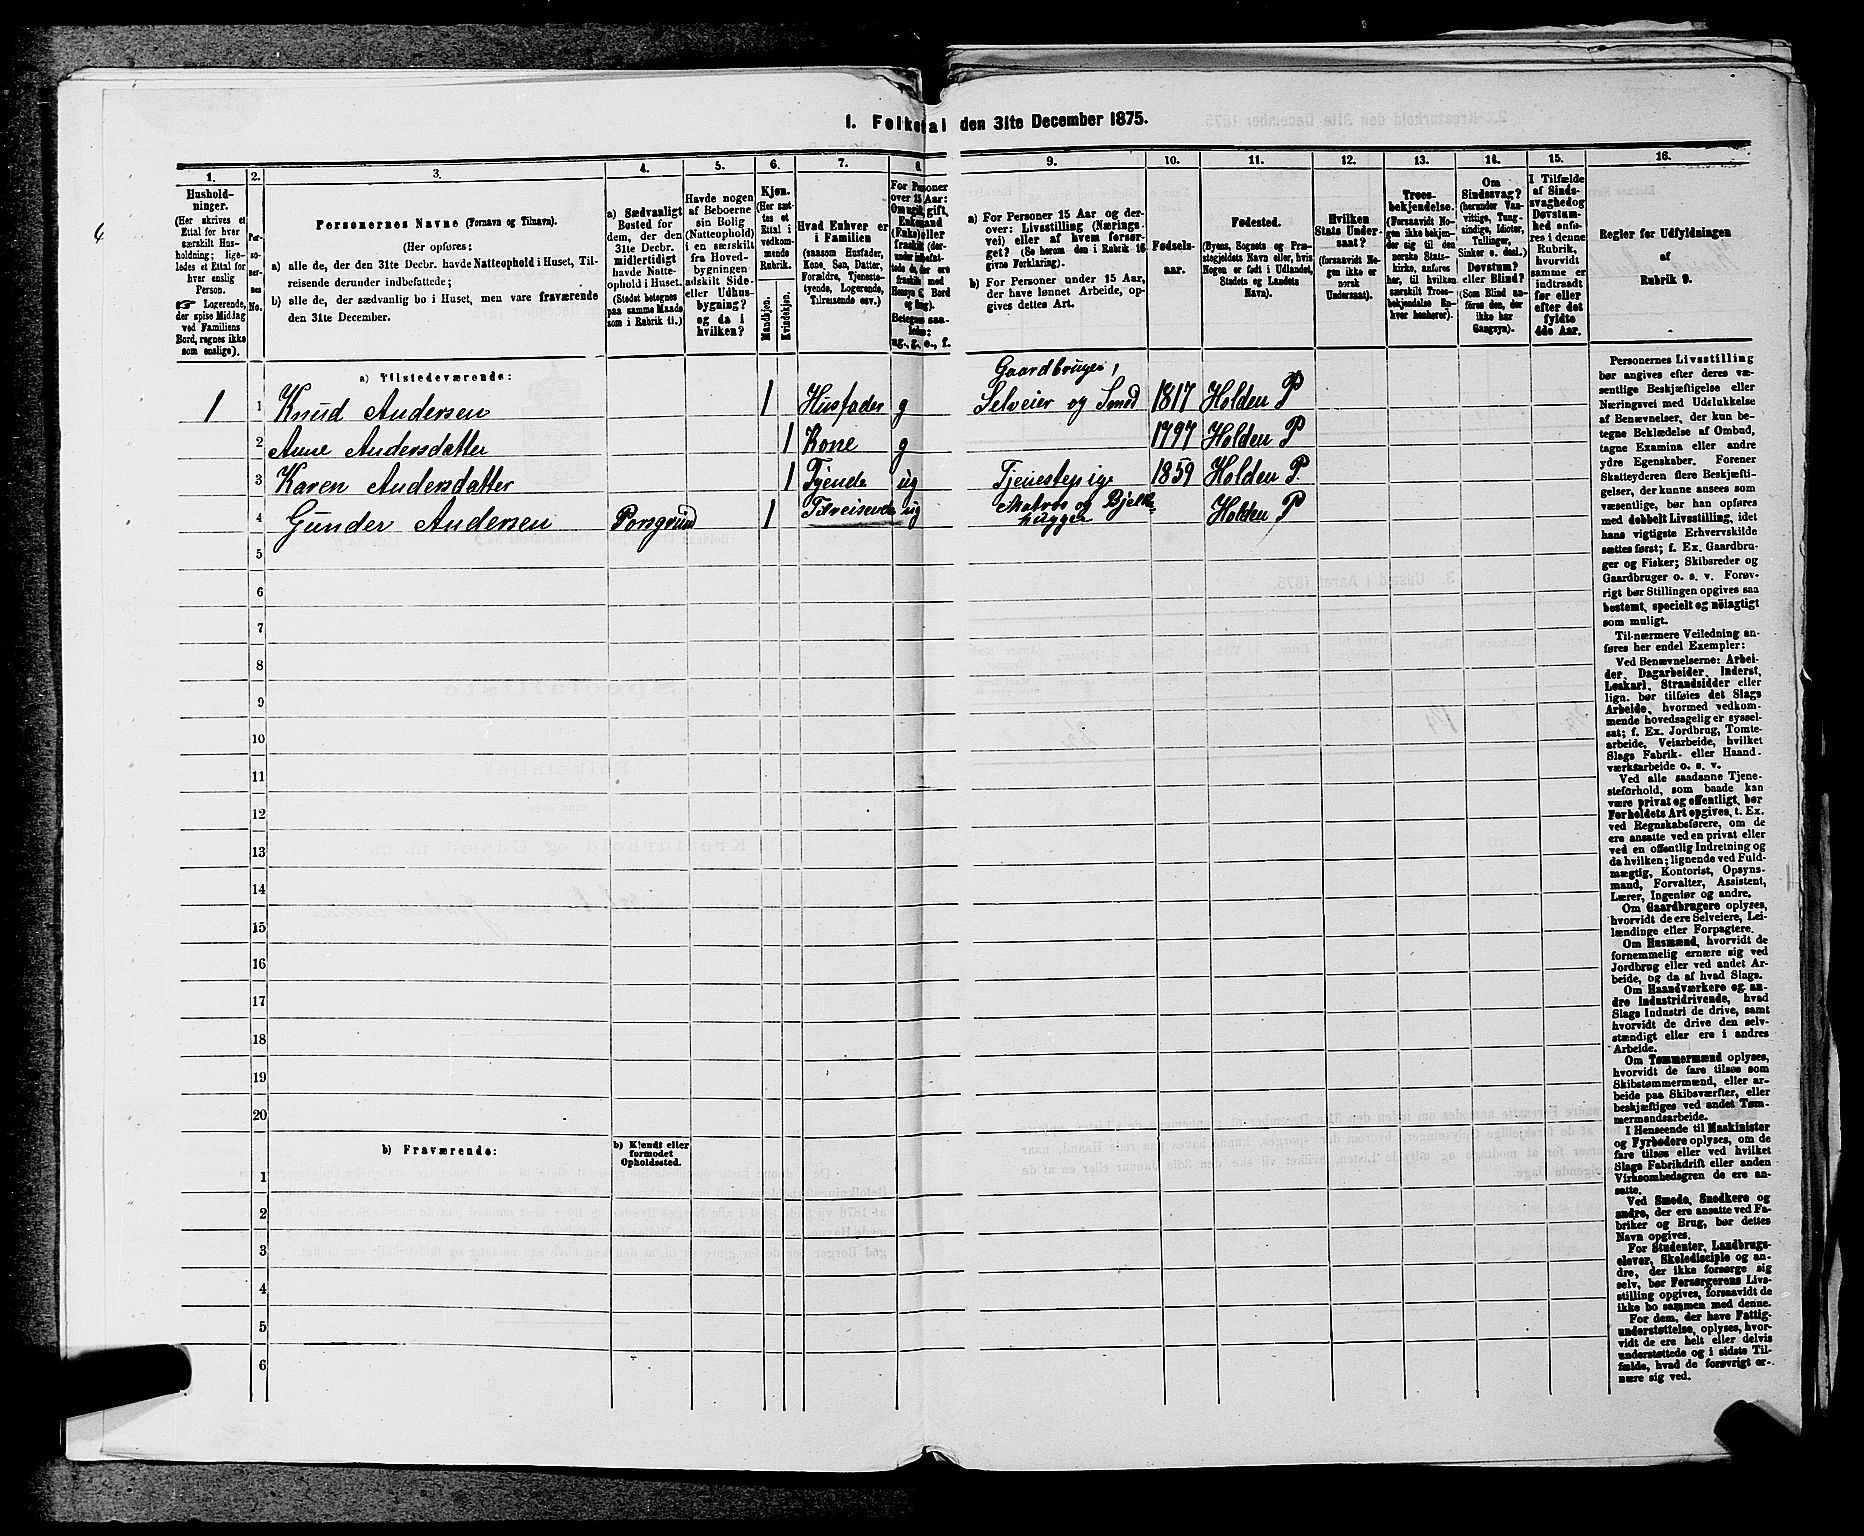 I. Folketal den 31te December 1875.
1. 2. 3. 4. 5. 6. 7. 8. 9. 10. 11. 12. 13. 14. 15. 16.
Hushold-
ninger.
(Her skrives et
Ettal for hver
særskilt Hus-
holdning; lige-
ledes et Ettal for
hver enslig
Person.
☛ Logerende,
der spise Middag
ved Familiens
Bord, regnes ikke
som enslige).
Per-
so-
ner-
nes
No.
Personernes Navne (Fornavn og Tilnavn).
(Her opføres:
a) alle de, der den 31te Decbr. havde Natteophold i Huset, Til-
reisende derunder indbefattede;
b) alle de, der sædvanlig bo i Huset, men vare fraværende
den 31te December.
a) Sædvanligt
Bosted for
dem, der den
31te Decbr.
midlertidigt
havde Natte-
ophold i Huset.
(Stedet betegnes
paa samme Maade
som i Rubrik 11.)
Havde nogen
af Beboerne
sin Bolig
(Natteophold)
i en særskilt
fra Hoved-
bygningen
adskilt Side-
eller Udhus-
bygning?
og da i
hvilken?
Kjøn.
(Her sæt-
tes et
Ettal i
vedkom-
mende
Rubrik.
Mandkjøn.
Kvindekjøn.
Hvad Enhver er
i Familien
(saasom Husfader,
Kone, Søn, Datter,
Forældre, Tjeneste-
tyende, Logerende,
Tilreisende osv.)
For Personer
over 15 Aar:
Om ugift, gift,
Enkemand
(Enke) eller
fraskilt (der-
under indbefat-
tede de, der ere
fraskilt med
Hensyn til Bord
og Seng).
Betegnes saa-
ledes:
ug., g., e., f.
a) For Personer 15 Aar og der-
over: Livsstilling (Nærings-
vei) eller af hvem forsør-
get? (Se herom den i Rubrik 16
givne Forklaring).
b) For Personer under 15 Aar,
der have lønnet Arbeide, op-
gives dettes Art.
Fødsels-
aar.
Fødested.
(Byens, Sognets og Præ-
stegjeldets Navn eller, hvis
Nogen er født i Udlandet,
Stedets og Landets
Navn).
Hvilken
Stats Under-
saat?
(forsaavidt No-
gen ikke er
norsk
Undersaat).
Troes-
bekjendelse.
(Forsaavidt No-
gen ikke bekjen-
der sig til den
norske Stats-
kirke, anføres
her, til hvilken
særskilt Troes-
bekjendelse En-
hver henhører).
Om
Sindssvag?
(herunder Van-
vittige, Tung-
sindige, Idioter,
Tullinger,
Sinker o. desl.).
Døvstum?
eller Blind?
(Som Blind an-
føres den, der
ikke har
Gangsyn).
I Tilfælde
af Sinds-
svaghed og
Døvstum-
hed anfø-
res i denne
Rubrik,
hvorvidt
samme er
indtraadt
før eller
efter det
fyldte
4de Aar.
Regler for Udfyldningen
af
Rubrik 9.
a) Tilstedeværende:
1 1 Knud Andersen 1 Husfader g Gaardbruger, Selveier og Smed 1817 Holden P
2 Anne Andersdatter 1 Kone g 1797 Holden P
3 Karen Andersdatter 1 Tjende ug Tjenestepige 1859 Holden P.
4 Gunder Andersen Porsgrund 1 Tilreisende ug Matros og Bjelke-
hugger Holden P
5
6
7
8
9
10
11
12
13
14
15
16
17
18
19
20
b) Fraværende:
b) Kjendt eller
formodet
Opholdssted.
1
2
3
4
5
6
Personernes Livsstilling
bør angives efter deres væ-
sentlige Beskjæftigelse eller
Næringsvei med Udelukkelse
af Benævnelser, der kun be-
tegne Beklædelse af Ombud,
tagne Examina eller andre
ydre Egenskaber. Forener
Skatteyderen flere Beskjæfti-
gelser, der kunne ansees som
væsentlige, bør han opføres
med dobbelt Livsstilling, idet
hans vigtigste Erhvervskilde
sættes først; f. Ex. Gaardbru-
ger og Fisker; Skibsreder og
Gaardbruger o. s. v. Forøv-
rigt bør Stillingen opgives saa
bestemt, specielt og nöiagtigt
som muligt.
Til nærmere Veiledning an-
føres her endel Exempler:
Ved Benævnelserne: Arbei-
der, Dagarbeider, Inderst,
Løskarl, Strandsidder eller
lign. bør tilføies det Slags
Arbeide, hvormed vedkom-
mende hovedsagelig er syssel-
sat; f. Ex. Jordbrug, Tomte-
arbeide, Veiarbeide, hvilket
Slags Fabrik- eller Haand-
værksarbeide o. s. v.
Ved alle saadanne Tjene-
steforhold, som baade kan
være privat og offentligt, bør
Forholdets Art opgives, t. Ex.
ved Regnskabsførere, om de
ere ansatte ved en privat eller
ved en offentlig Indretning og
da hvilken; lignende ved Fuld-
mægtig, Kontorist, Opsyns-
mand, Forvalter, Assistent,
Lærer, Ingeniør og andre.
Om Gaardbrugere oplyses,
hvorvidt de ere Selveiere, Lei-
lændinge eller Forpagtere.
Om Husmænd, hvorvidt de
fornemmelig ernære sig ved
Jordbrug eller ved andet Ar-
beide, og da af hvad Slags.
Om Haandværkere og an-
dre Industridrivende, hvad
Slags Industri de drive, samt
hvorvidt de drive den selv-
stændigt eller ere i andres
Arbeide.
Om Tømmermænd oplyses,
hvorvidt de fare tilsøs som
Skibstømmermænd, eller ar-
beide paa Skibsværfter, eller
beskjæftiges ved andet Tøm-
mermandsarbeide.
I Henseende til Maskinister
og Fyrbødere oplyses, om de
fare tilsøs eller ved hvilket
Slags Fabrikdrift eller anden
Virksomhedsgren de ere an-
satte.
Ved Smede, Snedkere og
andre, der ere ansatte ved Fa-
briker og Brug, bør dettes
Navn opgives.
For Studenter, Landbrugs-
elever, Skoledisciple og an-
dre, der ikke forsørge sig
selv, bør Forsørgerens Livs-
stilling opgives, forsaavidt de
ikke bo sammen med denne.
For dem, der have Fattig-
understøttelse, oplyses, hvor-
vidt de ere helt eller delvis
understøttede og i sidste Til-
fælde, hvad de forøvrigt er-
nære sig ved.